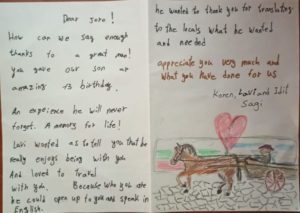 Dear Joro!
How can we say enough
thanks to a great man!
you gave our son an
amazing 13 birthday.
An experience he will never
forget. A memory for life!
Lavi wanted us to tell you that he
really enjoys being with you
And loved to Travel
with you. Because who you are
he could open up to you and speak in
English.
he wanted to thank you for translating
to the locals what he wanted
and needed
appreciate you very much and
what you have done for us
Koren, Lavi and Idit
Sagi